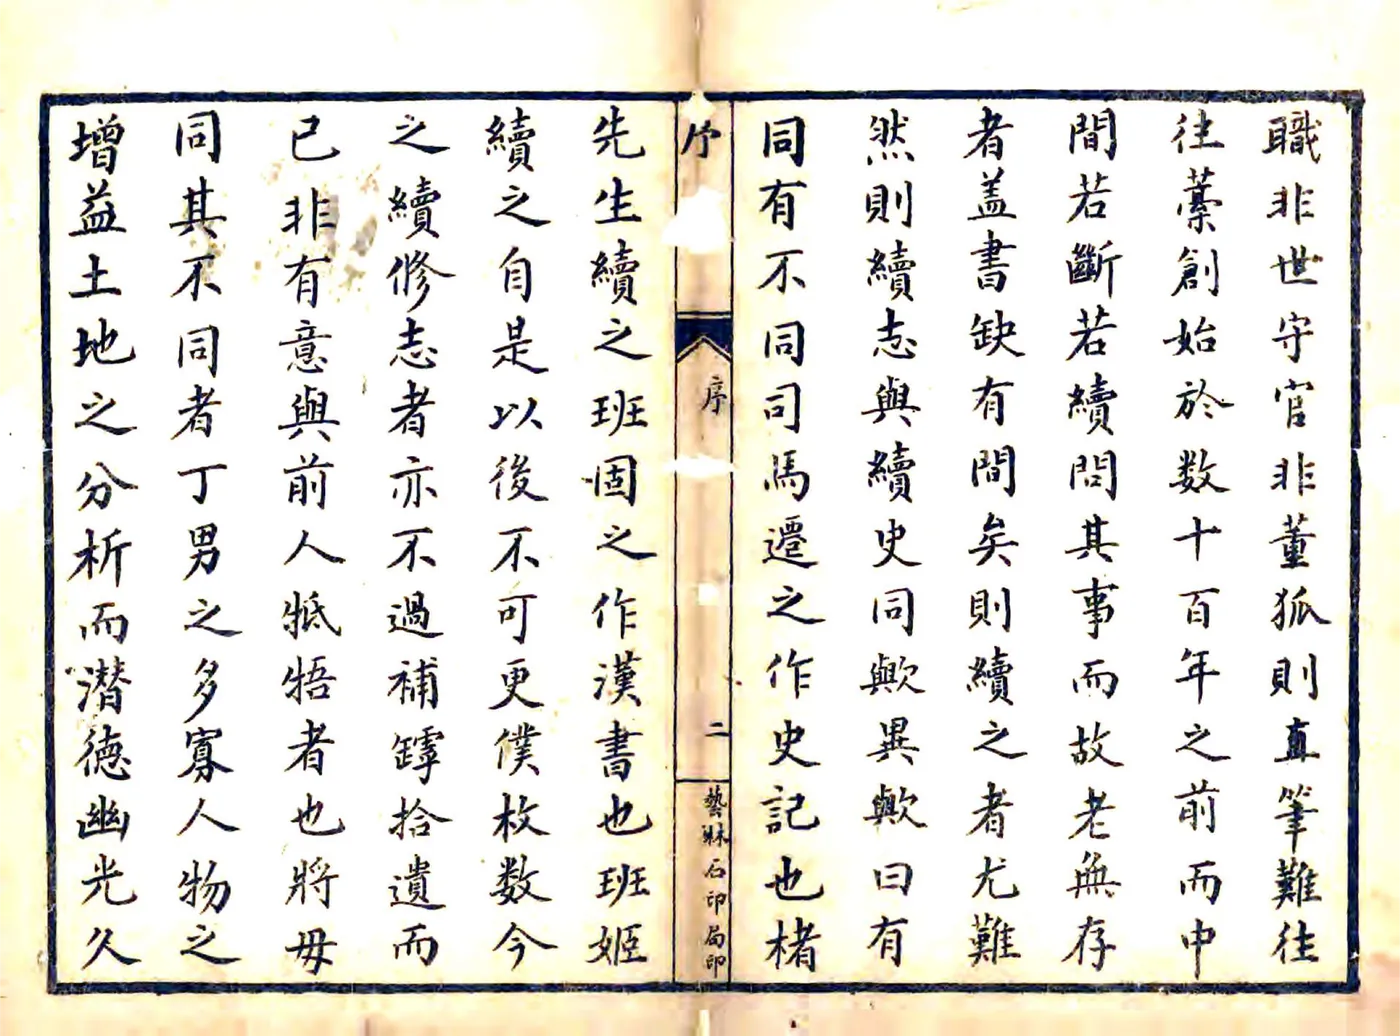 職非世守官非董狐則直筆難往
往藁創始於数十百年之前而中
間若斷若續問其事而故老無存
者盖書缺有間矣則續之者尤難
然則續志與續史同歟異歟曰有
同有不同司馬遷之作史記也楮
序
序
二
藝牀石印局印
先生續之班固之作漢書也班姬
續之自是以後不可更僕枚数今
之續修志者亦不過補罅拾遺而
已非有意與前人牴牾者也將毋
同其不同者丁男之多寡人物之
增益土地之分析而潜德幽光久